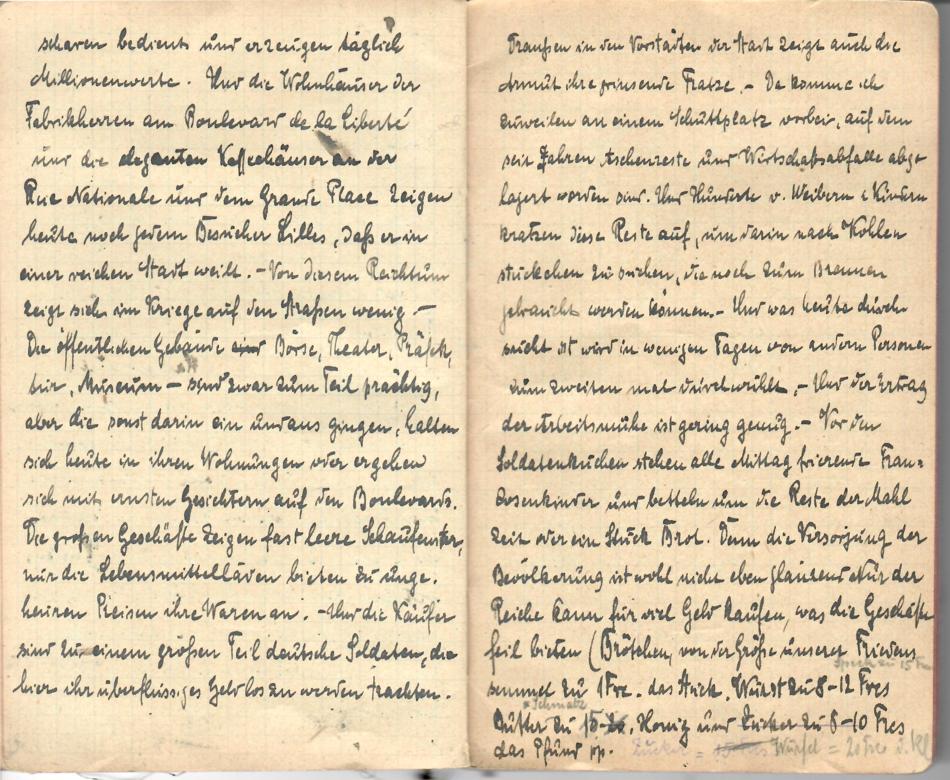 scharen bedient und erzeugen täglich
Millionenwerte. Und die Wohnhäuser der
Fabrikherren am Boulevard de la Liberté
und die eleganten Kaffeehäuser an der
Rue Nationale und dem Grande Place zeigen
heute noch jedem Besucher Lilles, daß er in
einer reichen Stadt weilt. – Von diesem Reichtum
zeigt sich im Kriege auf den Straßen wenig. –
Die öffentlichen Gebäude Börse, Theater, Präfek,
tur, Museum – sind zwar zum Teil prächtig,
aber die sonst darin ein und aus gingen, halten
sich heute in ihren Wohnungen oder ergehen
sich mit ernsten Gesichtern auf den Boulevards.
Die großen Geschäfte zeigen fast leere Schaufenster,
nur die Lebensmittelläden bieten zu unge.
heuren Preisen ihre Waren an. – Und die Käufer
sind zu einem großen Teil deutsche Soldaten, die
hier ihr überflüssiges Geld los zu werden trachten.
Draußen in den Vorstädten der Stadt zeigt auch die
Armut ihre grinsende Fratze. – Da komme ich
zuweilen an einem Schuttplatz vorbei, auf dem
seit Jahren Aschenreste und Wirtschaftsabfälle abge-
lagert worden sind. Und Hunderte v. Weibern & Kindern
kratzen diese Reste auf, um darin nach Kohlen
stückchen zu suchen, die noch zum Brennen
gebraucht werden können. – Und was heute durch
sucht ist wird in wenigen Tagen von andern Personen
zum zweiten mal durchwühlt. – Und der Ertrag
der Arbeitsmühe ist gering genug. – Vor den
Soldatenküchen stehen alle Mittag frierende Fran=
zosenkinder und betteln um die Reste der Mahl
zeit oder ein Stück Brot. Denn die Versorgung der
Bevölkerung ist wohl nicht eben glänzend Nur der
Reiche kann für viel Geld kaufen, was die Geschäfte
feil bieten (Brötchen, von der Größe unserer Friedens
Speck zu 15 Frc
semmel zu 1 Frc. das Stück. Wurst zu 8–12 Frcs
+ Schmalz
Butter zu 15 Honig und Zucker zu 8–10 Frcs
das Pfund pp. Zucker = Würfel = 20 Frc d. Kl